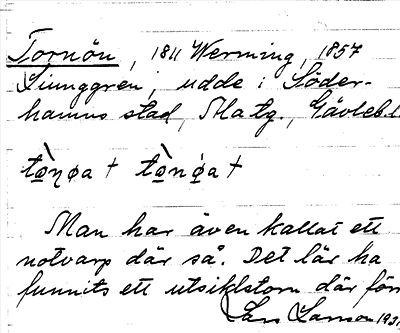 Tornön, 1811 Werming, 1857
Ljunggren, udde i Söder-
hamns stad, Matg., Gävleb.l.
tò̱ŋøa + tò̱nǿa +
Man har även kallat ett
notvarp där så. Det lär ha
funnits ett utsiktstorn där för
Lars Larson 192